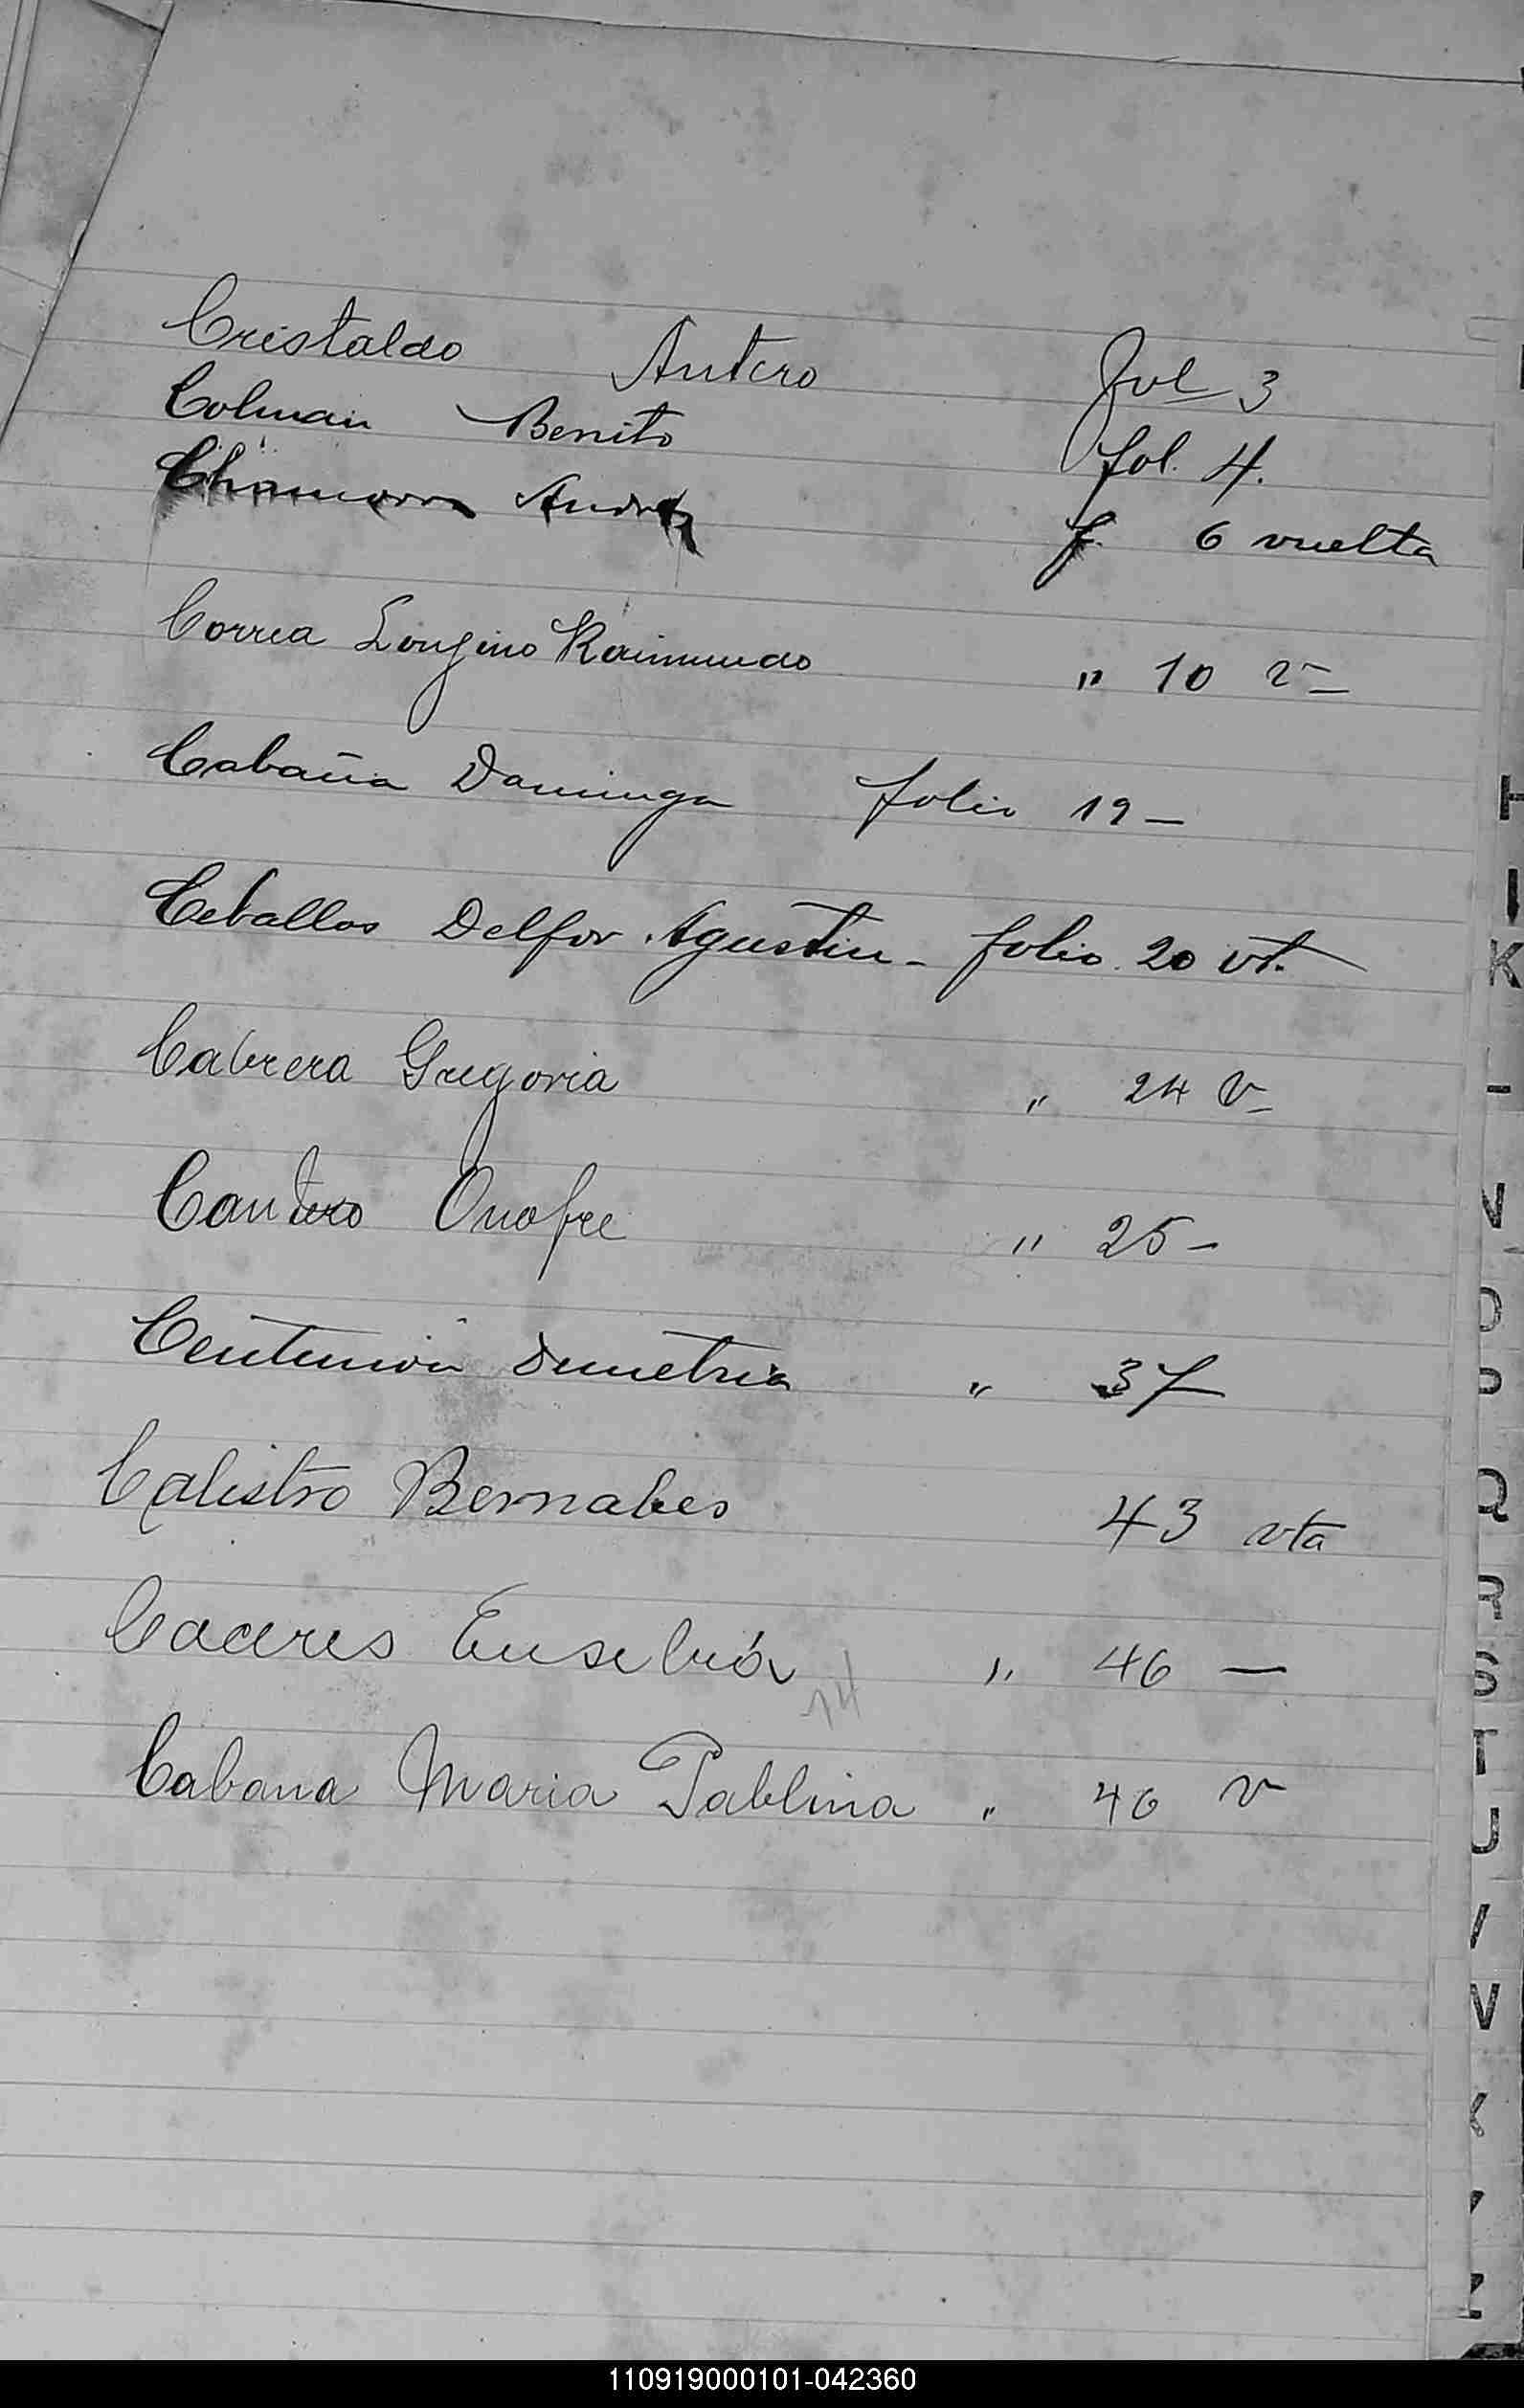 Cristaldo Antero Fol 3
Colman Benito fol. 4.
Chamorro Andrés f. 6 vuelta
Correa Longino Raimundo " 10 v—
Cabaña Dominga folio 19—
Ceballos Delfor Agustin - folio 20 vt.
Cabrera Gregoria " 24 v—
Cantero Onofre " 25—
Centurión Demetria " 37
Calistro Bernabes 43 vta
Caceres Eusebia " 46 —
14
Cabana Maria Pablina " 46 v
H
I
K
L
N
O
P
Q
R
S
T
U
V
X
Y
Z
110919000101-042360